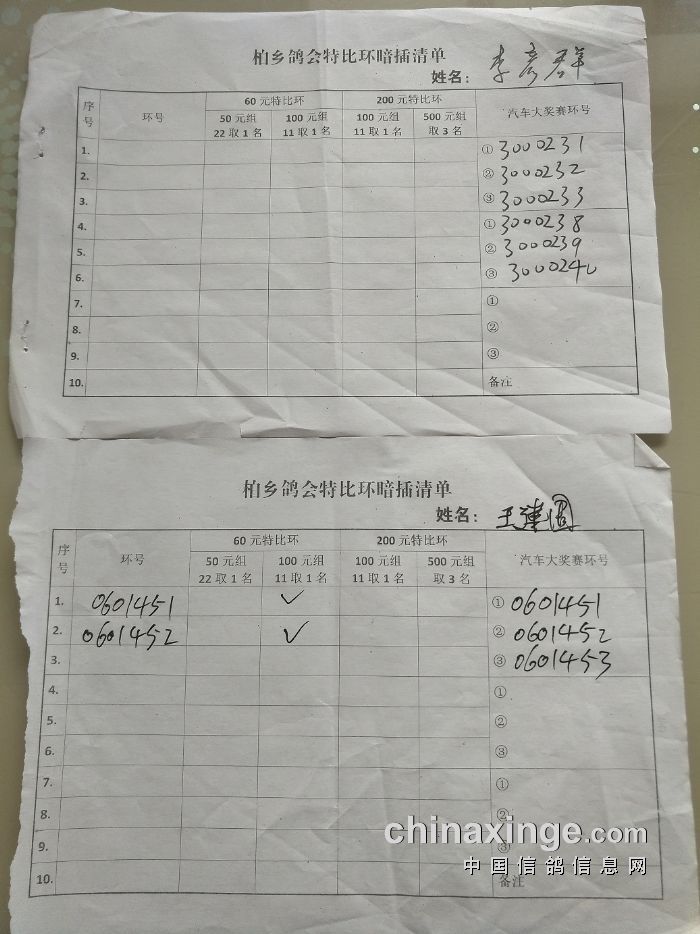 柏乡鸽会特比环暗插清单
姓名： 李彦群
序号 环号 60 元特比环 200 元特比环 汽车大奖赛环号
50 元组 22 取 1 名 100 元组 11 取 1 名 100 元组 11 取 1 名 500 元组 取 3 名
1. ① 3000231
2. ② 3000232
3. ③ 3000233
4. ① 3000238
5. ② 3000239
6. ③ 3000240
7. ①
8. ②
9. ③
10. 备注
柏乡鸽会特比环暗插清单
姓名： 王建
序号 环号 60 元特比环 200 元特比环 汽车大奖赛环号
50 元组 22 取 1 名 100 元组 11 取 1 名 100 元组 11 取 1 名 500 元组 取 3 名
1. 0601451 ✓ ① 0601451
2. 0601452 ✓ ② 0601452
3. ③ 0601453
4. ①
5. ②
6. ③
7. ①
8. ②
9. ③
10. 备注
chinaxinge.com
中国信鸽信息网